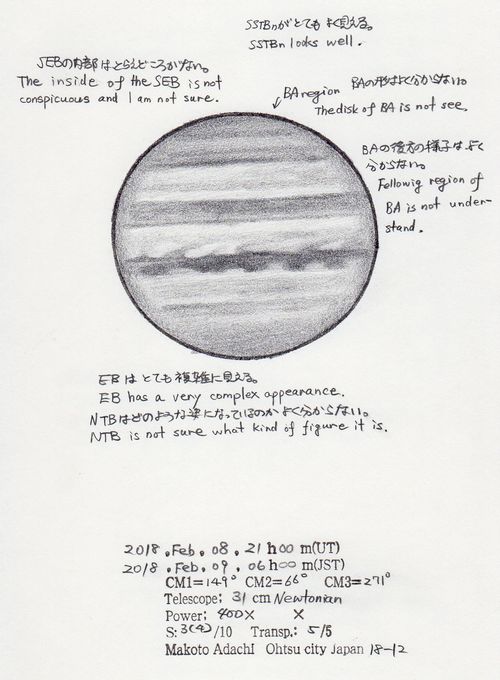 SSTBnがとてもよく見える。
SSTBn looks well.
SEBの内部はとらえどころがない。
The inside of the SEB is not
conspicuous and I am not sure.
BA region
BAの形はよく分からない。
The disk of BA is not see.
BAの後方の様子はよく
分からない。
Followig region of
BA is not under-
stand.
EBはとても複雑に見える。
EB has a very complex appearance.
NTBはどのような姿になっているのかよく分からない。
NTB is not sure what kind of figure it is.
2018 . Feb . 08 . 21 h 00 m(UT)
2018 . Feb . 09 . 06 h 00 m(JST)
CM1=149° CM2=66° CM3=271°
Telescope: 31 cm Newtonian
Power: 400× ×
S: 3(4)/10 Transp.: 5/5
Makoto Adachi Ohtsu city Japan 18-12